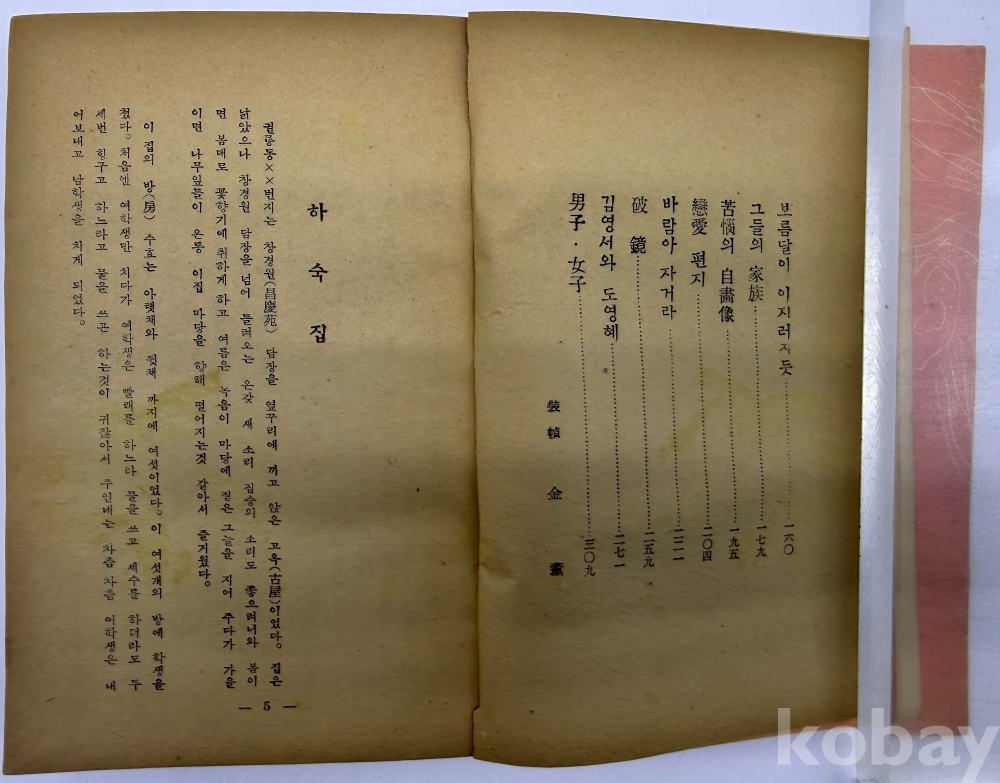 보름달이 이지러지듯……一六〇
그들의 家族……一七九
苦惱의 自畵像……一九五
戀愛 편지……二〇四
바람아 자거라……二二一
破鏡……二五九
김영서와 도영혜……二七一
男子·女子……三〇九
裝幀 金 薰
하숙집
원릉동××번지는 창경원(昌慶苑) 담장을 옆꾸리에 끼고 앉은 고옥(古屋)이었다. 집은
낡았으나 창경원 담장을 넘어 들려오는 온갖 새 소리 짐승의 소리도 좋으려니와 봄이
면 봄대로 꽃향기에 취하게 하고 여름은 녹음이 마당에 짙은 그늘을 지어 주다가 가을
이면 나무잎들이 온통 이집 마당을 향해 떨어지는것 같아서 즐거웠다.
이 집의 방(房) 수효는 아랫채와 윗채 까지에 여섯이었다. 이 여섯개의 방에 학생을
쳤다. 처음엔 여학생만 치다가 여학생은 빨래를 하느라 물을 쓰고 세수를 하더라도 두
세번 헹구고 하느라고 물을 쓰곤 하는것이 귀찮아서 주인네는 차츰 차츰 여학생은 내
어보내고 남학생을 치게 되였다.
— 5 —
kobay